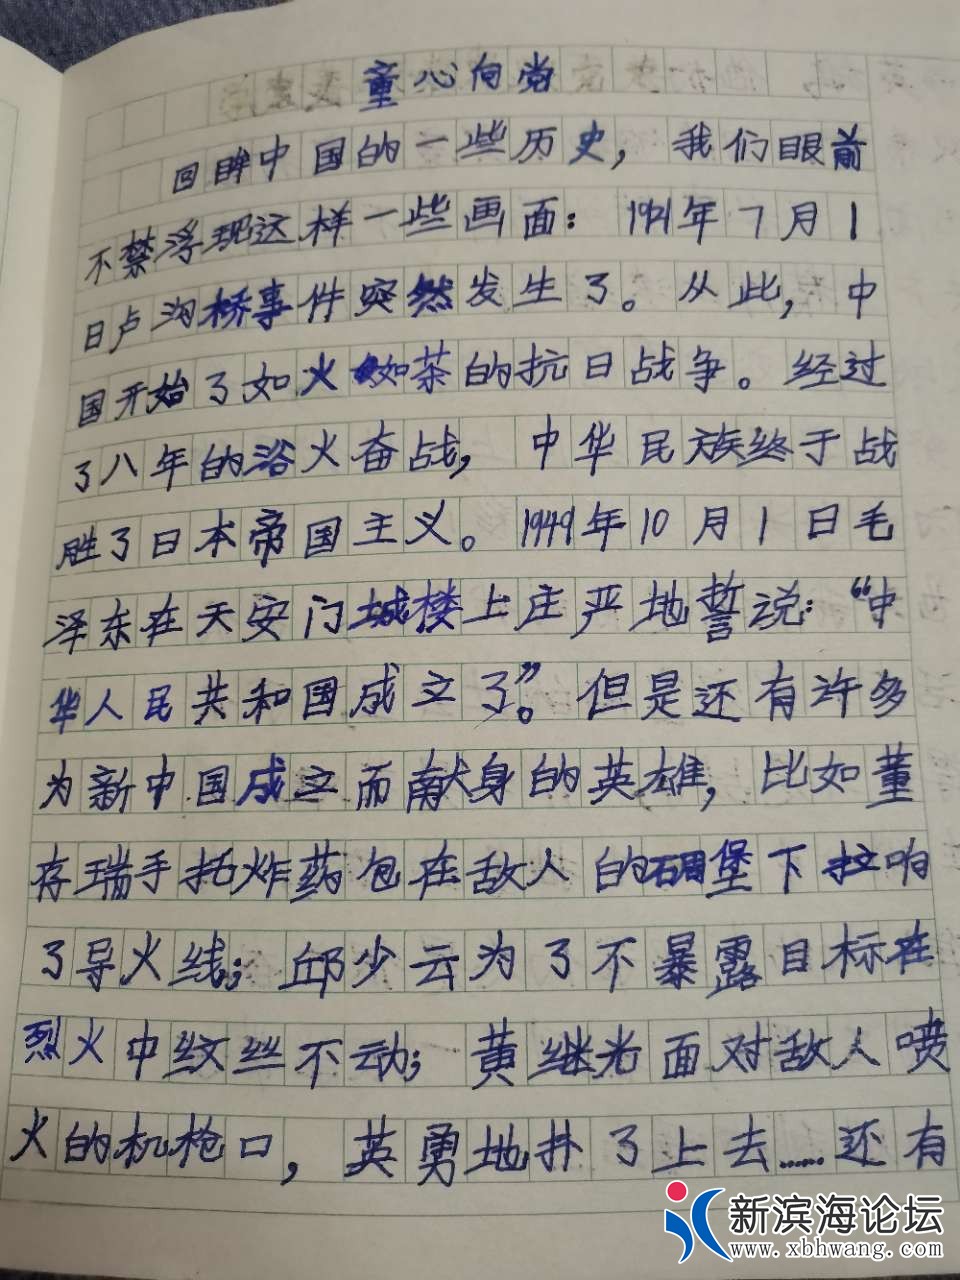 童心向党
回眸中国的一些历史，我们眼前
不禁浮现这样一些画面：1921年7月1
日卢沟桥事件突然发生了。从此，中
国开始了如火如茶的抗日战争。经过
了八年的浴火奋战，中华民族终于战
胜了日本帝国主义。1949年10月1日毛
泽东在天安门城楼上庄严地誓说：“中
华人民共和国成立了”。但是还有许多
为新中国成立而献身的英雄，比如董
存瑞手托炸药包在敌人的碉堡下拉响
了导火线；邱少云为了不暴露目标在
烈火中纹丝不动；黄继光面对敌人喷
火的机枪口，英勇地扑了上去……还有
新滨海论坛
www.xbhwang.com